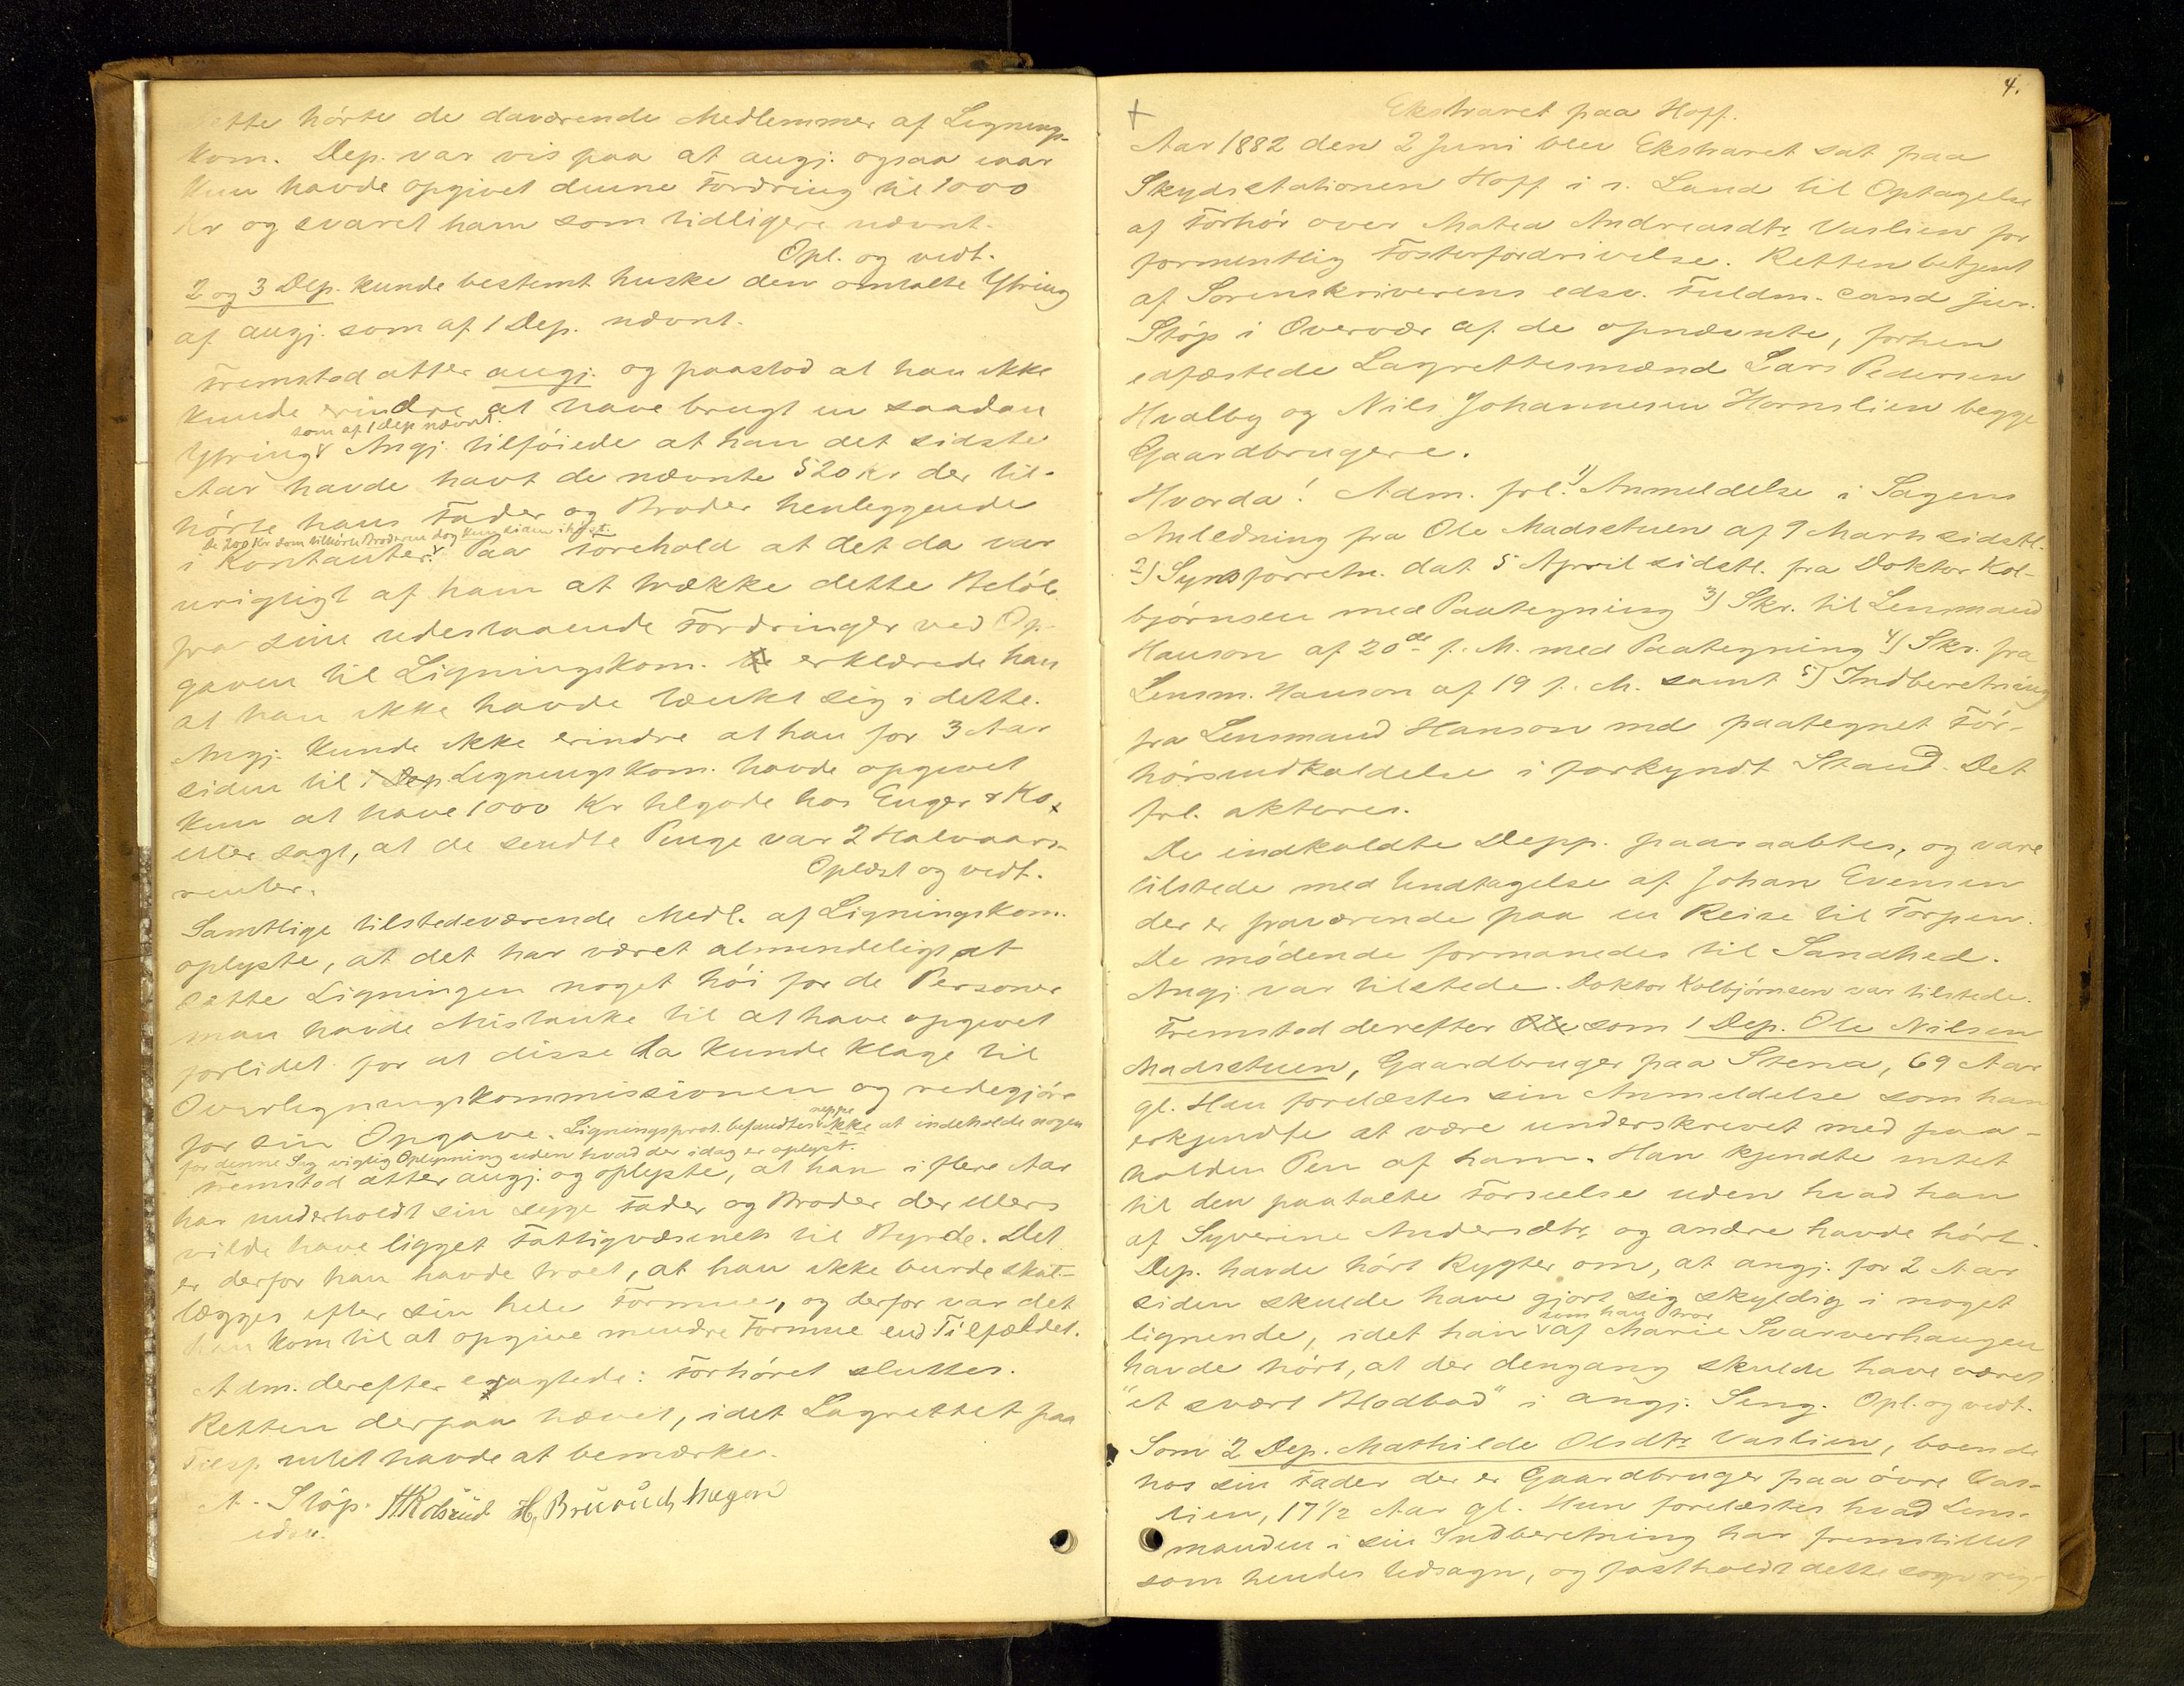 Dette hørte de daværende Medlemmer af Lignings-
kom. Dep. var vis paa at angj. ogsaa iaar
kun havde opgivet denne Fordring til 1000
Kr og svaret ham som tidligere nævnt.
Opl. og vedt.
2 og 3 Dep. kunde bestemt huske den omtalte Ytring
af angj. som af 1 Dep. nævnt.
Fremstod atter angj. og paastod at han ikke
kunde erindre at have brugt en saadan
som af 1 Dep nævnt.
Ytring. Angj. tilføiede at han det sidste
Aar havde havt de nævnte 520 Kr der til-
hørte hans Fader og Broder henleggende
De 200 Kr som tilhørte Broderen dog kun siden ihøst.
i Kontanter. Paa Forehold at det da var
urigtigt af ham at trække dette Beløb
fra sine udestaaende Fordringer ved Op-
gaven til Ligningskom. erklærede han
at han ikke havde tænkt sig i dette.
Angj. kunde ikke erindre at han for 3 Aar
siden til 1 Dep Ligningskom. havde opgivet
kun at have 1000 Kr tilgode hos Enger & Ko
eller sagt, at de sendte Penge var 2 Halvaars-
renter.
Oplæst og vedt.
Samtlige tilstedeværende Medl. af Ligningskom.
oplyste, at det har været almindeligt at
sætte Ligningen noget høi for de Personer
man havde Mistanke til at have opgivet
forlidet for at disse da kunde klage til
Overligningskommissionen og redegjøre
for sin Opgave. Ligningsprot. befandtes neppe ikke at indeholde nogen
for denne Sag vigtig Oplysning uden hvad der idag er oplyst.
Fremstod atter angj. og oplyste, at han i flere Aar
har underholdt sin syge Fader og Broder der ellers
vilde have ligget Fattigvæsenet til Byrde. Det
er derfor han havde troet, at han ikke burde skat-
lægges efter sin hele Formue, og derfor var det
han kom til at opgive mindre Formue end Tilfældet.
Adm. derefter eragtede: Forhøret sluttes.
Retten derpaa hævet, idet Lagrettet paa
Tilsp. intet havde at bemærke.
A. Støp. H. Bruvud hagen
edsv.
4.
Ekstraret paa Hoff.
Aar 1882 den 2 Juni blev Ekstraret sat paa
Skydsstationen Hoff i s. Land til Optagelse
af Forhør over Matea Andreasdtr. Vaslien for
formentlig Fosterfordrivelse. Retten betjent
af Sorenskriverens edsv. Fuldm. cand jur.
Støp i Overvær af de opnævnte, forhen
edfæstede Lagrettesmænd Lars Pedersen
Hvalby og Nils Johannesen Hornslien begge
Gaardbrugere.
Hvorda! Adm. frl. 1) Anmeldelse i Sagens
Anledning fra Ole Madsstuen af 9 Marts sidstl.
2) Synsforretn. dat. 5 April sidstl. fra Doktor Kol-
bjørnsen med Paategning 3) Skr. til Lensmand
Hanson af 20de f. M. med Paategning 4) Skr. fra
Lensm. Hanson af 19 f. M. samt 5) Indberetning
fra Lensmand Hanson med paategnet For-
hørsindkaldelse i forkyndt Stand. Det
frl. akteres.
De indkaldte Depp. paaraabtes, og vare
tilstede med Undtagelse af Johan Evensen
der er fraværende paa en Reise til Torpen.
De mødende formanedes til Sandhed.
Angj. var tilstede. Doktor Kolbjørnsen var tilstede.
Fremstod derefter Ole som 1 Dep. Ole Nilsen
Madsstuen, Gaardbruger paa Stena, 69 Aar
gl. Han forelæstes sin Anmeldelse som han
erkjendte at være underskrevet med paa-
holden Pen af ham. Han kjendte intet
til den paatalte Forseelse uden hvad han
af Syverine Andersdtr. og andre havde hørt.
Dep. havde hørt Rygter om, at angj. for 2 Aar
siden skulde have gjort sig skyldig i noget
som han tror
lignende, idet han af Marie Svarverhaugen
havde hørt, at der dengang skulde have været
"et svært Blodbad" i angj. Seng. Opl. og vedt.
Som 2 Dep. Mathilde Olsdtr. Vaslien, boende
hos sin Fader der er Gaardbruger paa øvre Vas-
lien, 17½ Aar gl. Hun forelæstes hvad Lens-
manden i sin Indberetning har fremstillet
som hendes Udsagn, og fastholdt dette som rig-